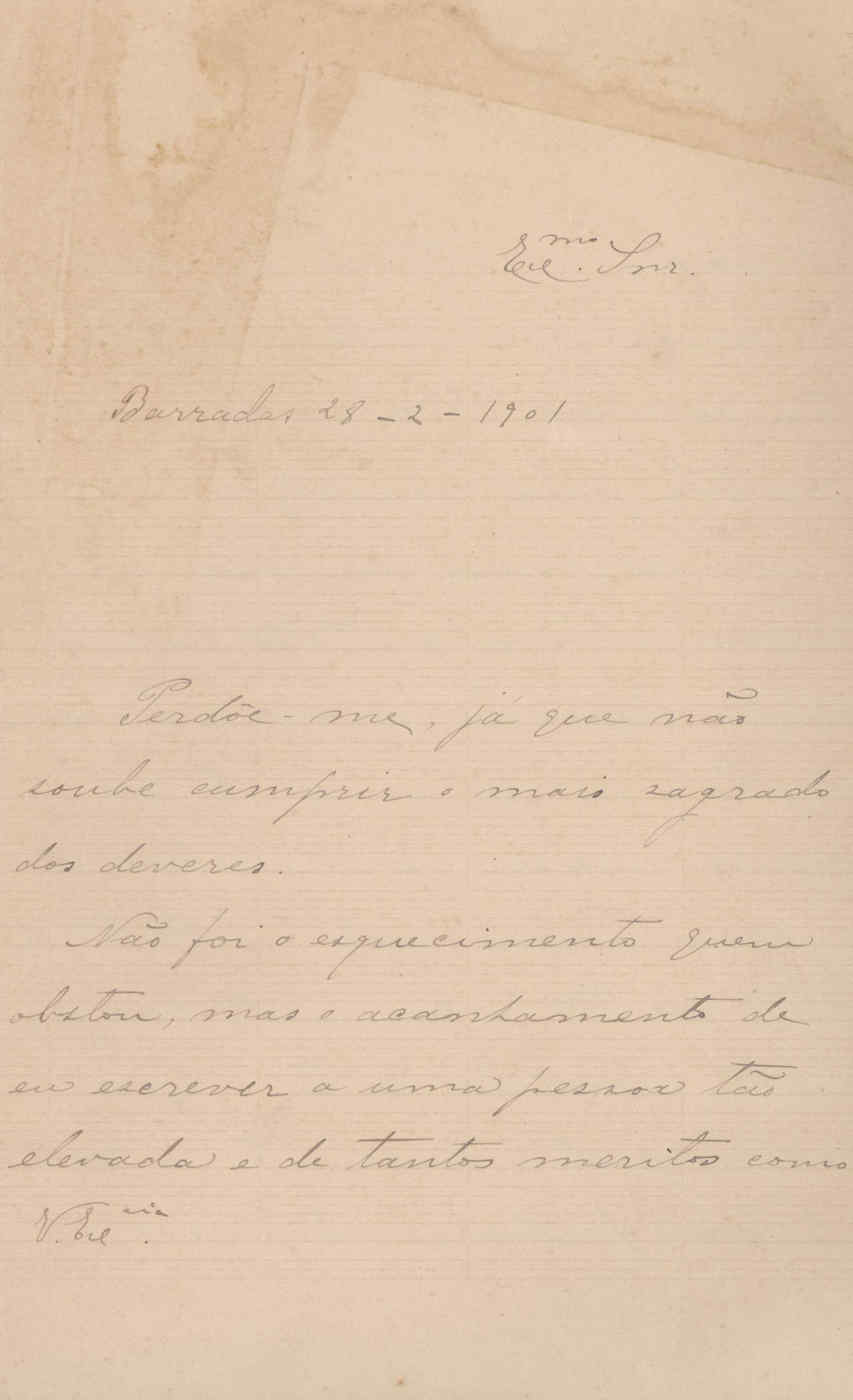 Exc.mo Snr.
Barradas 28-2-1901
Perdôe-me, já que não
soube cumprir o mais sagrado
dos deveres.
Não foi o esquecimento quem
obstou, mas o acanhamento de
eu escrever a uma pessoa tão
elevada e de tantos meritos como
V. Exc.cia.